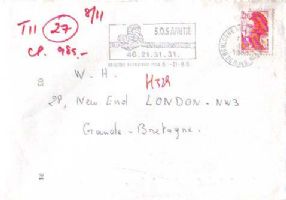 8/11
TII 27
CP. 985.-
S.O.S AMITIÉ
40.21.31.31.
W. H.
H328
28, New End LONDON - NW3
Grande-Bretagne.